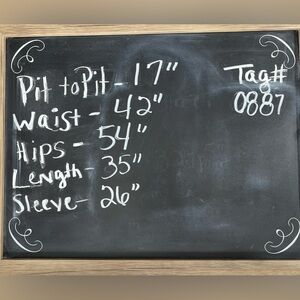 Pit to Pit - 17"
Waist - 42"
Hips - 54"
Length - 35"
Sleeve - 26"
Tag#
0887